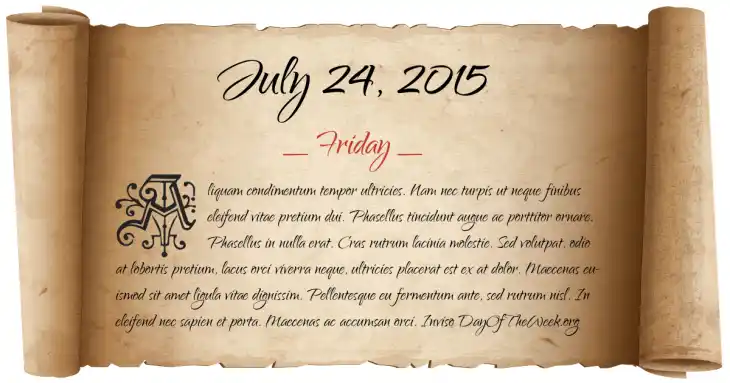 July 24, 2015
_ Friday _
Aliquam condimentum tempor ultricies. Nam nec turpis ut neque finibus
eleifend vitae pretium dui. Phasellus tincidunt augue ac porttitor ornare.
Phasellus in nulla erat. Cras rutrum lacinia molestie. Sed volutpat, odio
at lobortis pretium, lacus orci viverra neque, ultricies placerat est ex at dolor. Maecenas eu-
ismod sit amet ligula vitae dignissim. Pellentesque eu fermentum ante, sed rutrum nisl. In
eleifend nec sapien et porta. Maecenas ac accumsan orci. Inviso DayOfTheWeek.org